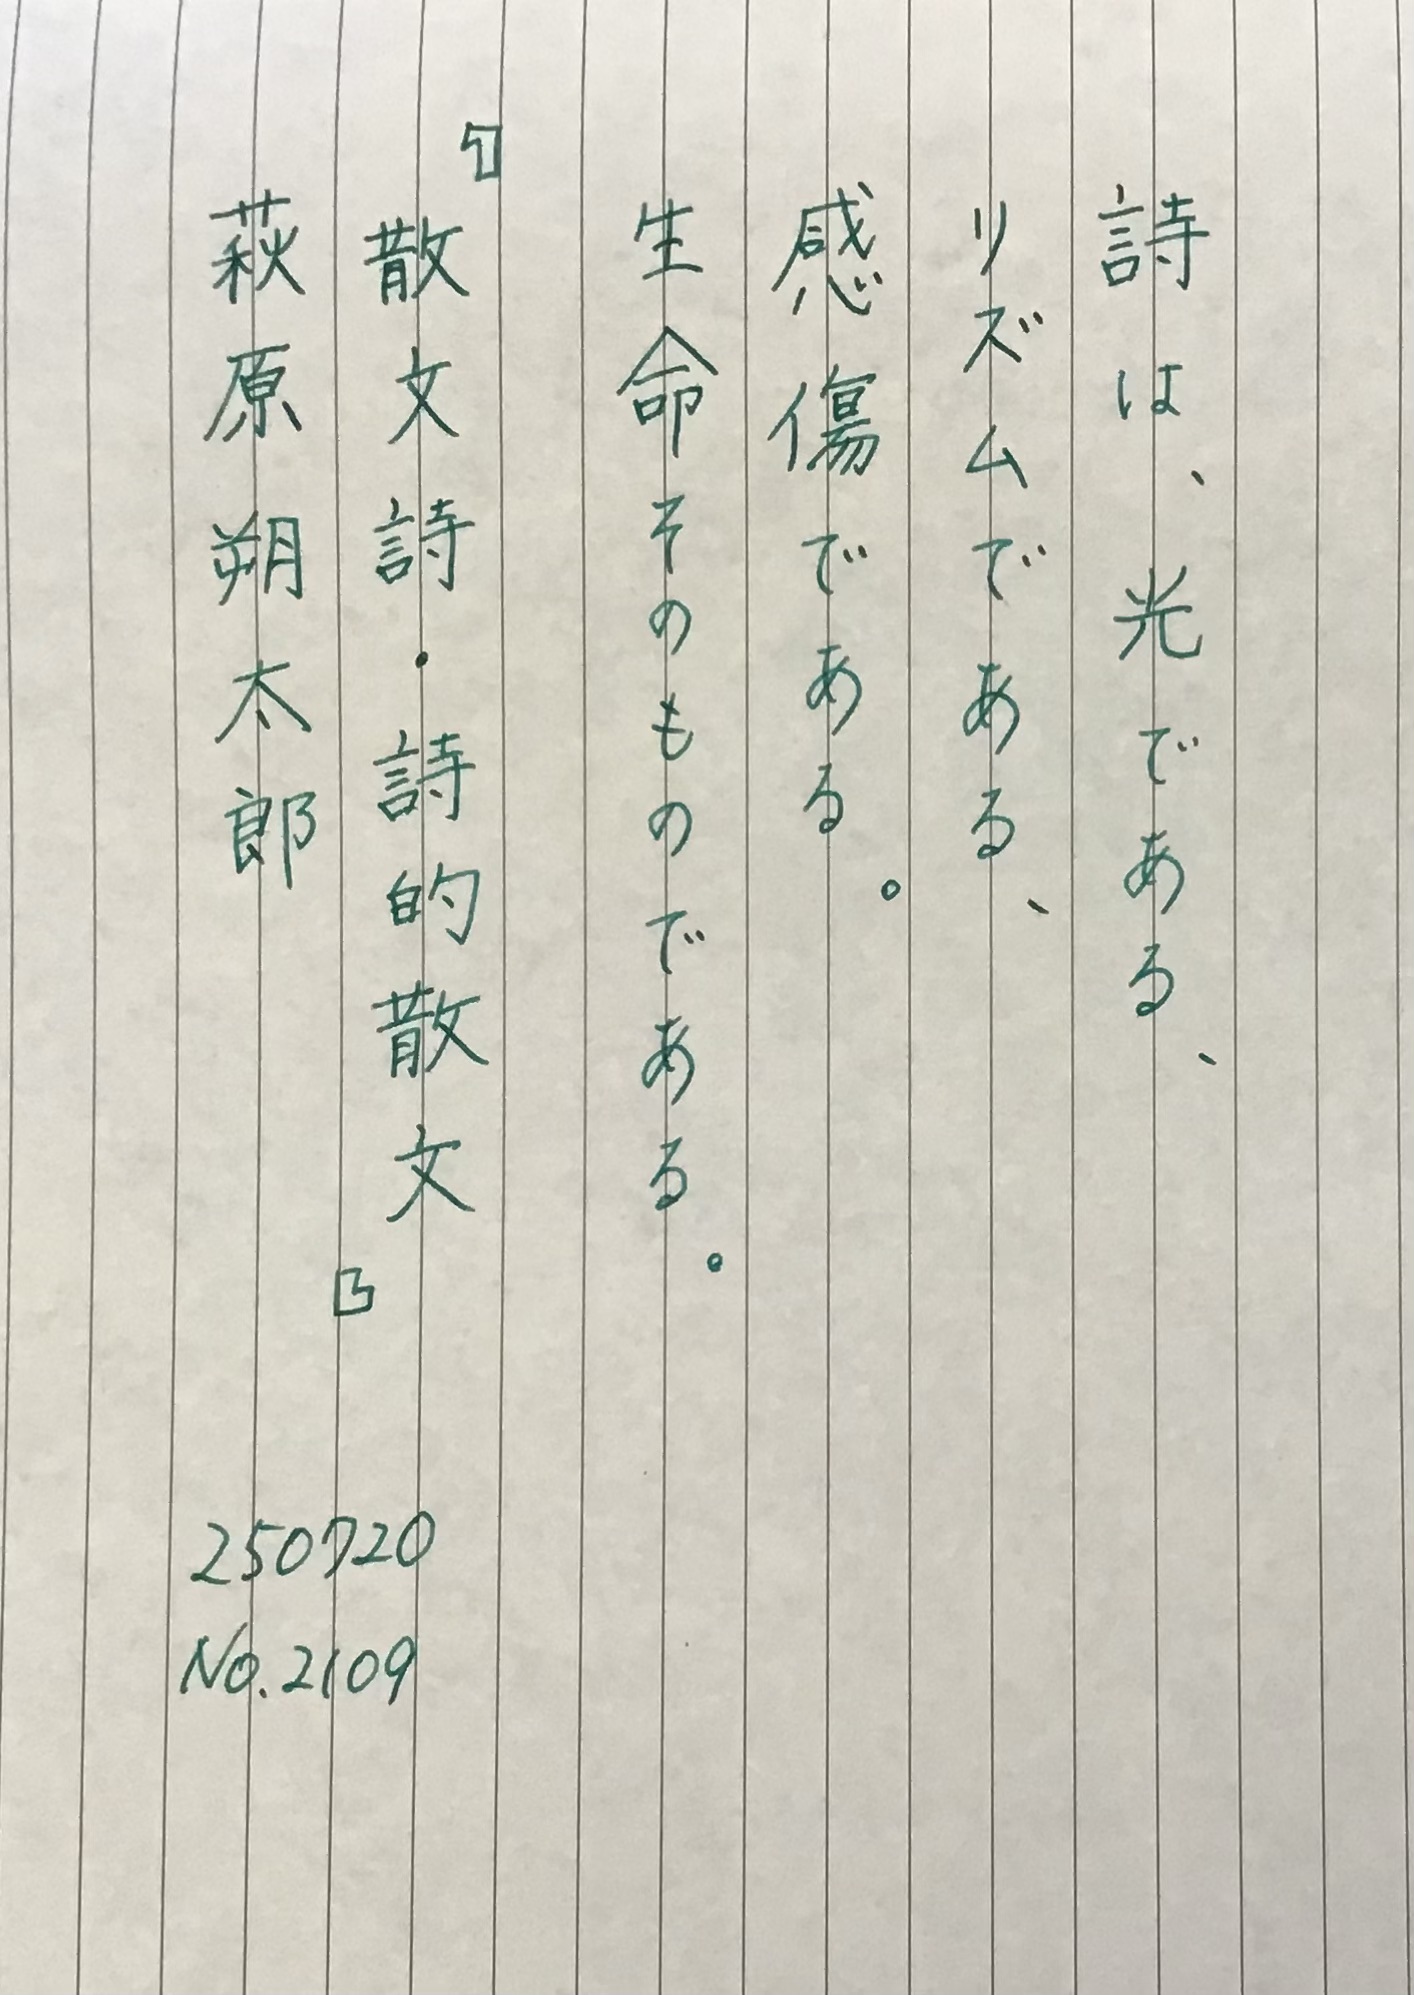 詩は、光である、
リズムである、
感傷である。
生命そのものである。
『散文詩・詩的散文』
萩原朔太郎
250720
No.2109